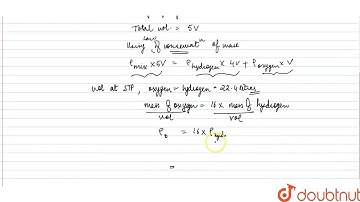 Total vol = 5V
Using law of conservatⁿ of mass
ρmix × 5V = ρhydrogen × 4V + ρoxygen × V
vol at STP, oxygen = hydrogen = 22.4 litres
mass of oxygen = 16 × mass of hydrogen
vol vol
= 16 × ρhyd.
=
doubtnut